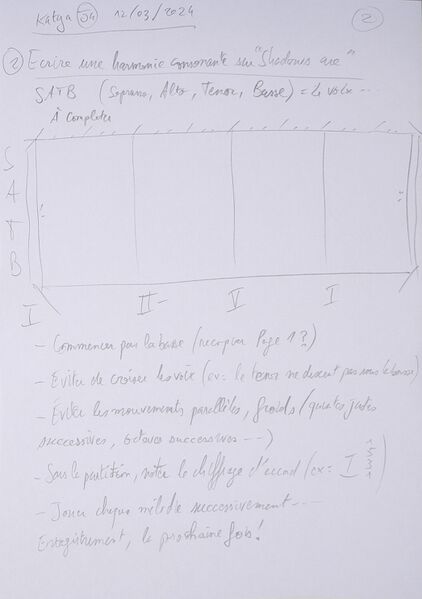 Katya 54 12/03/2024 2
2 Ecrire une harmonie consonante sur "Shadows are"
SATB (Soprano, Alto, Tenor, Basse) = le voix ...
À Completer
S
A
T
B
I II- V I
- Commencer par la basse (recopier Page 1 ?)
- Eviter de croiser les voix (ex: le tenor ne descent pas sous la basse)
- Eviter les mouvements parallèles, froids (quintes justes
successives, octaves successives ---)
- Sous la partition, noter le chiffrage d'accord (ex = I 1 5 3 1)
- Jouer chaque mélodie successivement ---
Enregistrement, la prochaine fois!